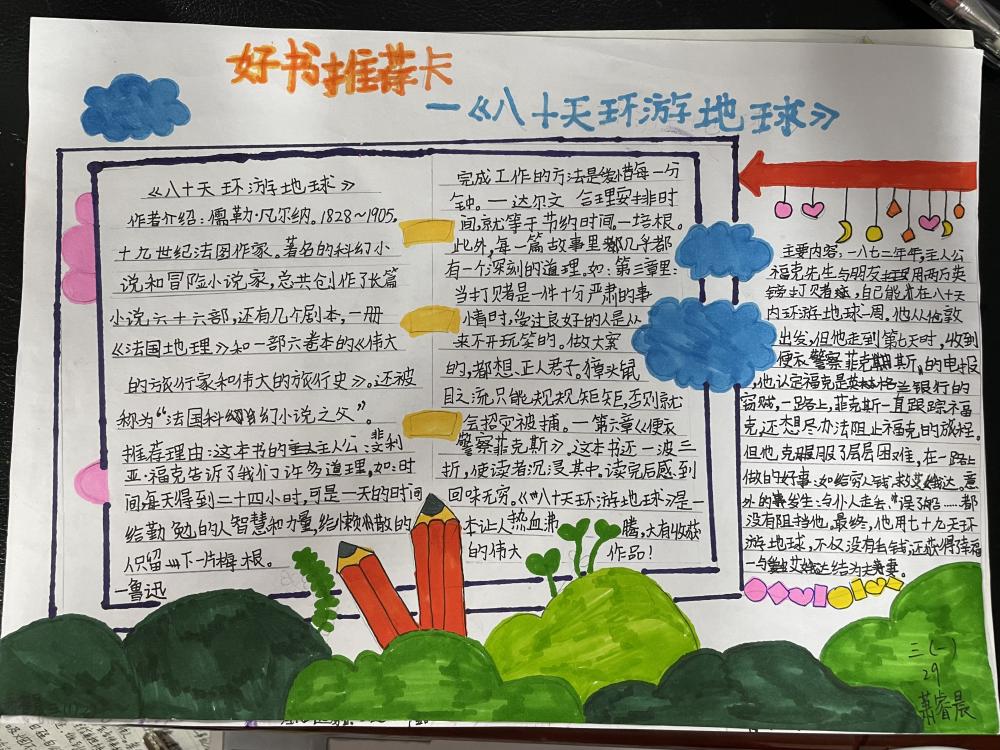 好书推荐卡
—《八十天环游地球》
《八十天环游地球》
作者介绍:儒勒·凡尔纳。1828~1905。
十九世纪法国作家。著名的科幻小
说和冒险小说家,总共创作了长篇
小说六十六部,还有几个剧本,一册
《法国地理》和一部六卷本的《伟大
的旅行家和伟大的旅行史》。还被
称为“法国科幻小说之父”。
推荐理由:这本书的主人公:斐利
亚·福克告诉了我们许多道理,如:时
间每天得到二十四小时,可是一天的时间
给勤勉的人智慧和力量,给懒散的
人只留下一片悔根。
—鲁迅
完成工作的方法是爱惜每一分
钟。—达尔文 合理安排时
间,就等于节约时间。—培根。
此外,每一篇故事里都几乎都
有一个深刻的道理。如:第三章里:
当打赌是一件十分严肃的事
情时,受过良好的人是从
来不开玩笑的。做大案
的,都想正人君子。獐头鼠
目之流,只能规规矩矩,否则就
会招灾被捕。—第六章《便衣
警察菲克斯》。这本书还一波三
折,使读者沉浸其中。读完后感到
回味无穷。《八十天环游地球》是一
本让人热血沸腾,大有收获
的伟大作品!
主要内容:一八七二年年,主人公
福克先生与朋友用两万英
镑打赌,自己能在八十天
内环游地球一周,他从伦敦
出发,但他走到第七天时,收到
便衣警察菲克斯,的电报
,他认定福克是银行的
窃贼,一路上,菲克斯一直跟踪不福
克,还想尽办法阻止福克的旅程。
但他克服了层层困难,在一路上
做的好事:如给穷人钱,救艾娥达,意
外的事发生:与仆人走丢,“误了船……都
没有阻挡他。最终,他用七十九天环
游地球,不仅没有毛钱,还获得幸福
—与艾娥达结为夫妻。
三(一)
29
萧睿晨